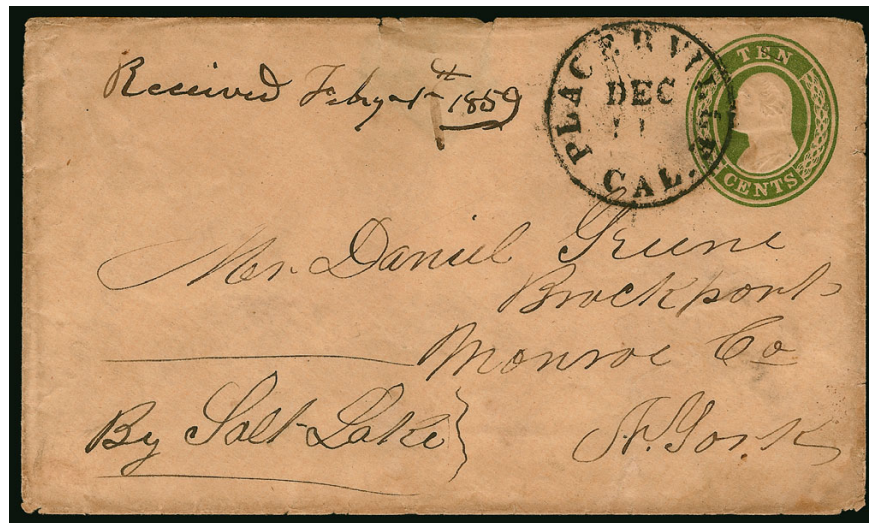 Received Feby 1st 1859
PLACERVILLE
DEC
11
CAL.
TEN
CENTS
Mr. Daniel Greene
Brockport
Monroe Co
By Salt Lake
N. York